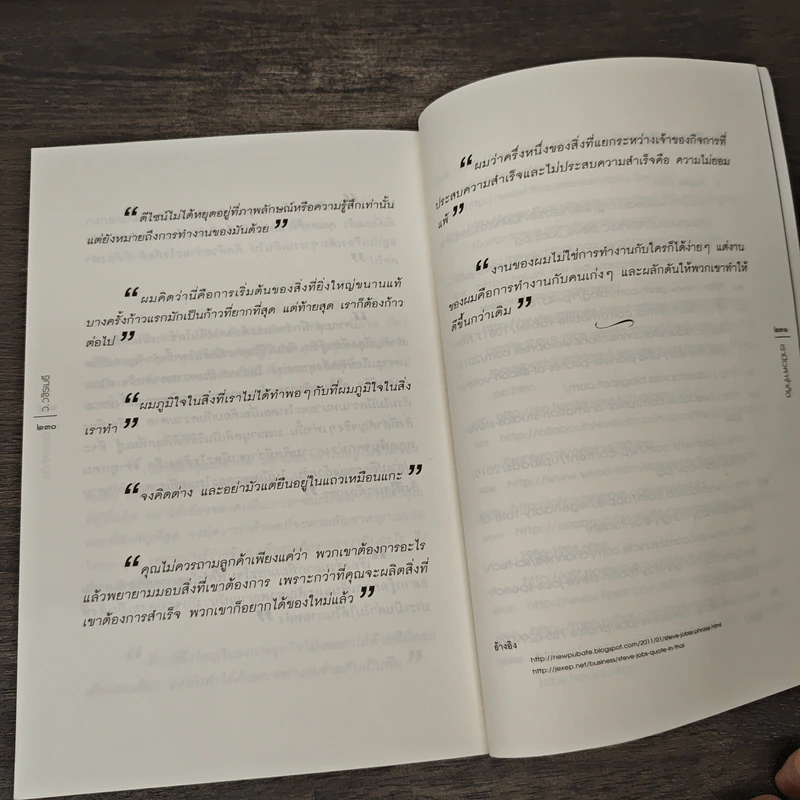 “ดีไซน์ไม่ได้หยุดอยู่ที่ภาพลักษณ์หรือความรู้สึกเท่านั้น
แต่ยังหมายถึงการทำงานของมันด้วย”
“ผมคิดว่านี่คือการเริ่มต้นของสิ่งที่ยิ่งใหญ่ขนานแท้
บางครั้งก้าวแรกมักเป็นก้าวที่ยากที่สุด แต่ท้ายสุด เราก็ต้องก้าว
ต่อไป”
“ผมภูมิใจในสิ่งที่เราไม่ได้ทำพอๆ กับที่ผมภูมิใจในสิ่ง
เราทำ”
“จงคิดต่าง และอย่ามัวแต่ยืนอยู่ในแถวเหมือนแกะ”
“คุณไม่ควรถามลูกค้าเพียงแค่ว่า พวกเขาต้องการอะไร
แล้วพยายามมอบสิ่งที่เขาต้องการ เพราะกว่าที่คุณจะผลิตสิ่งที่
เขาต้องการสำเร็จ พวกเขาก็อยากได้ของใหม่แล้ว”
๒๓๐ ว.วชิรเมธี
“ผมว่าครึ่งหนึ่งของสิ่งที่แยกระหว่างเจ้าของกิจการที่
ประสบความสำเร็จและไม่ประสบความสำเร็จคือ ความไม่ยอม
แพ้”
“งานของผมไม่ใช่การทำงานกับใครก็ได้ง่ายๆ แต่งาน
ของผมคือการทำงานกับคนเก่งๆ และผลักดันให้พวกเขาทำให้
ดีขึ้นกว่าเดิม”
อ้างอิง
http://newpubate.blogspot.com/2011/01/steve-jobs-phrase.html
http://jexep.net/business/steve-jobs-quote-in-thai